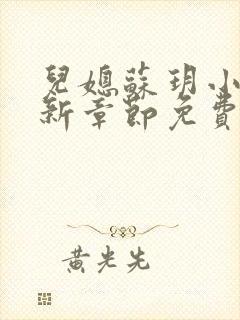 兒媳蘇玥小
新章節免費
黃光先